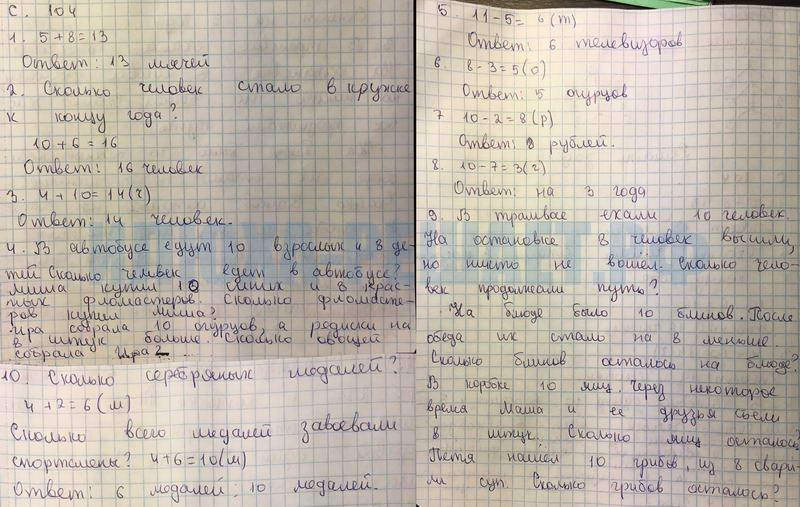 С. 104
1. 5+8=13
Ответ: 13 мячей
2. Сколько человек стало в кружке
к концу года?
10+6=16
Ответ: 16 человек
3. 4+10=14(ч)
Ответ: 14 человек.
4. В автобусе едут 10 взрослых и 8 де-
тей Сколько человек едет в автобусе?
Миша купил 10 синих и 8 крас-
ных фломастеров. Сколько фломасте-
ров купил Миша?
Ира собрала 10 огурцов, а редиски на
8 штук больше. Сколько овощей
собрала Ира
10. Сколько серебряных медалей?
4+2=6(м)
Сколько всего медалей завоевали
спортсмены? 4+6=10(м)
Ответ: 6 медалей, 10 медалей.
5. 11-5= 6(т)
Ответ: 6 телевизоров
6 8-3=5(о)
Ответ: 5 огурцов
7 10-2=8(р)
Ответ: 8 рублей.
8. 10-7=3(г)
Ответ: на 3 года
9. В трамвае ехали 10 человек.
На остановке 8 человек вышли,
но никто не вошёл. Сколько чело-
век продолжали путь?
На блюде было 10 блинов. После
обеда их стало на 8 меньше.
Сколько блинов осталось на блюде?
В коробке 10 яиц. Через некоторое
время Маша и ее друзья съели
8 штук. Сколько яиц осталось?
Петя нашел 10 грибов, из 8 свари-
ли суп. Сколько грибов осталось?